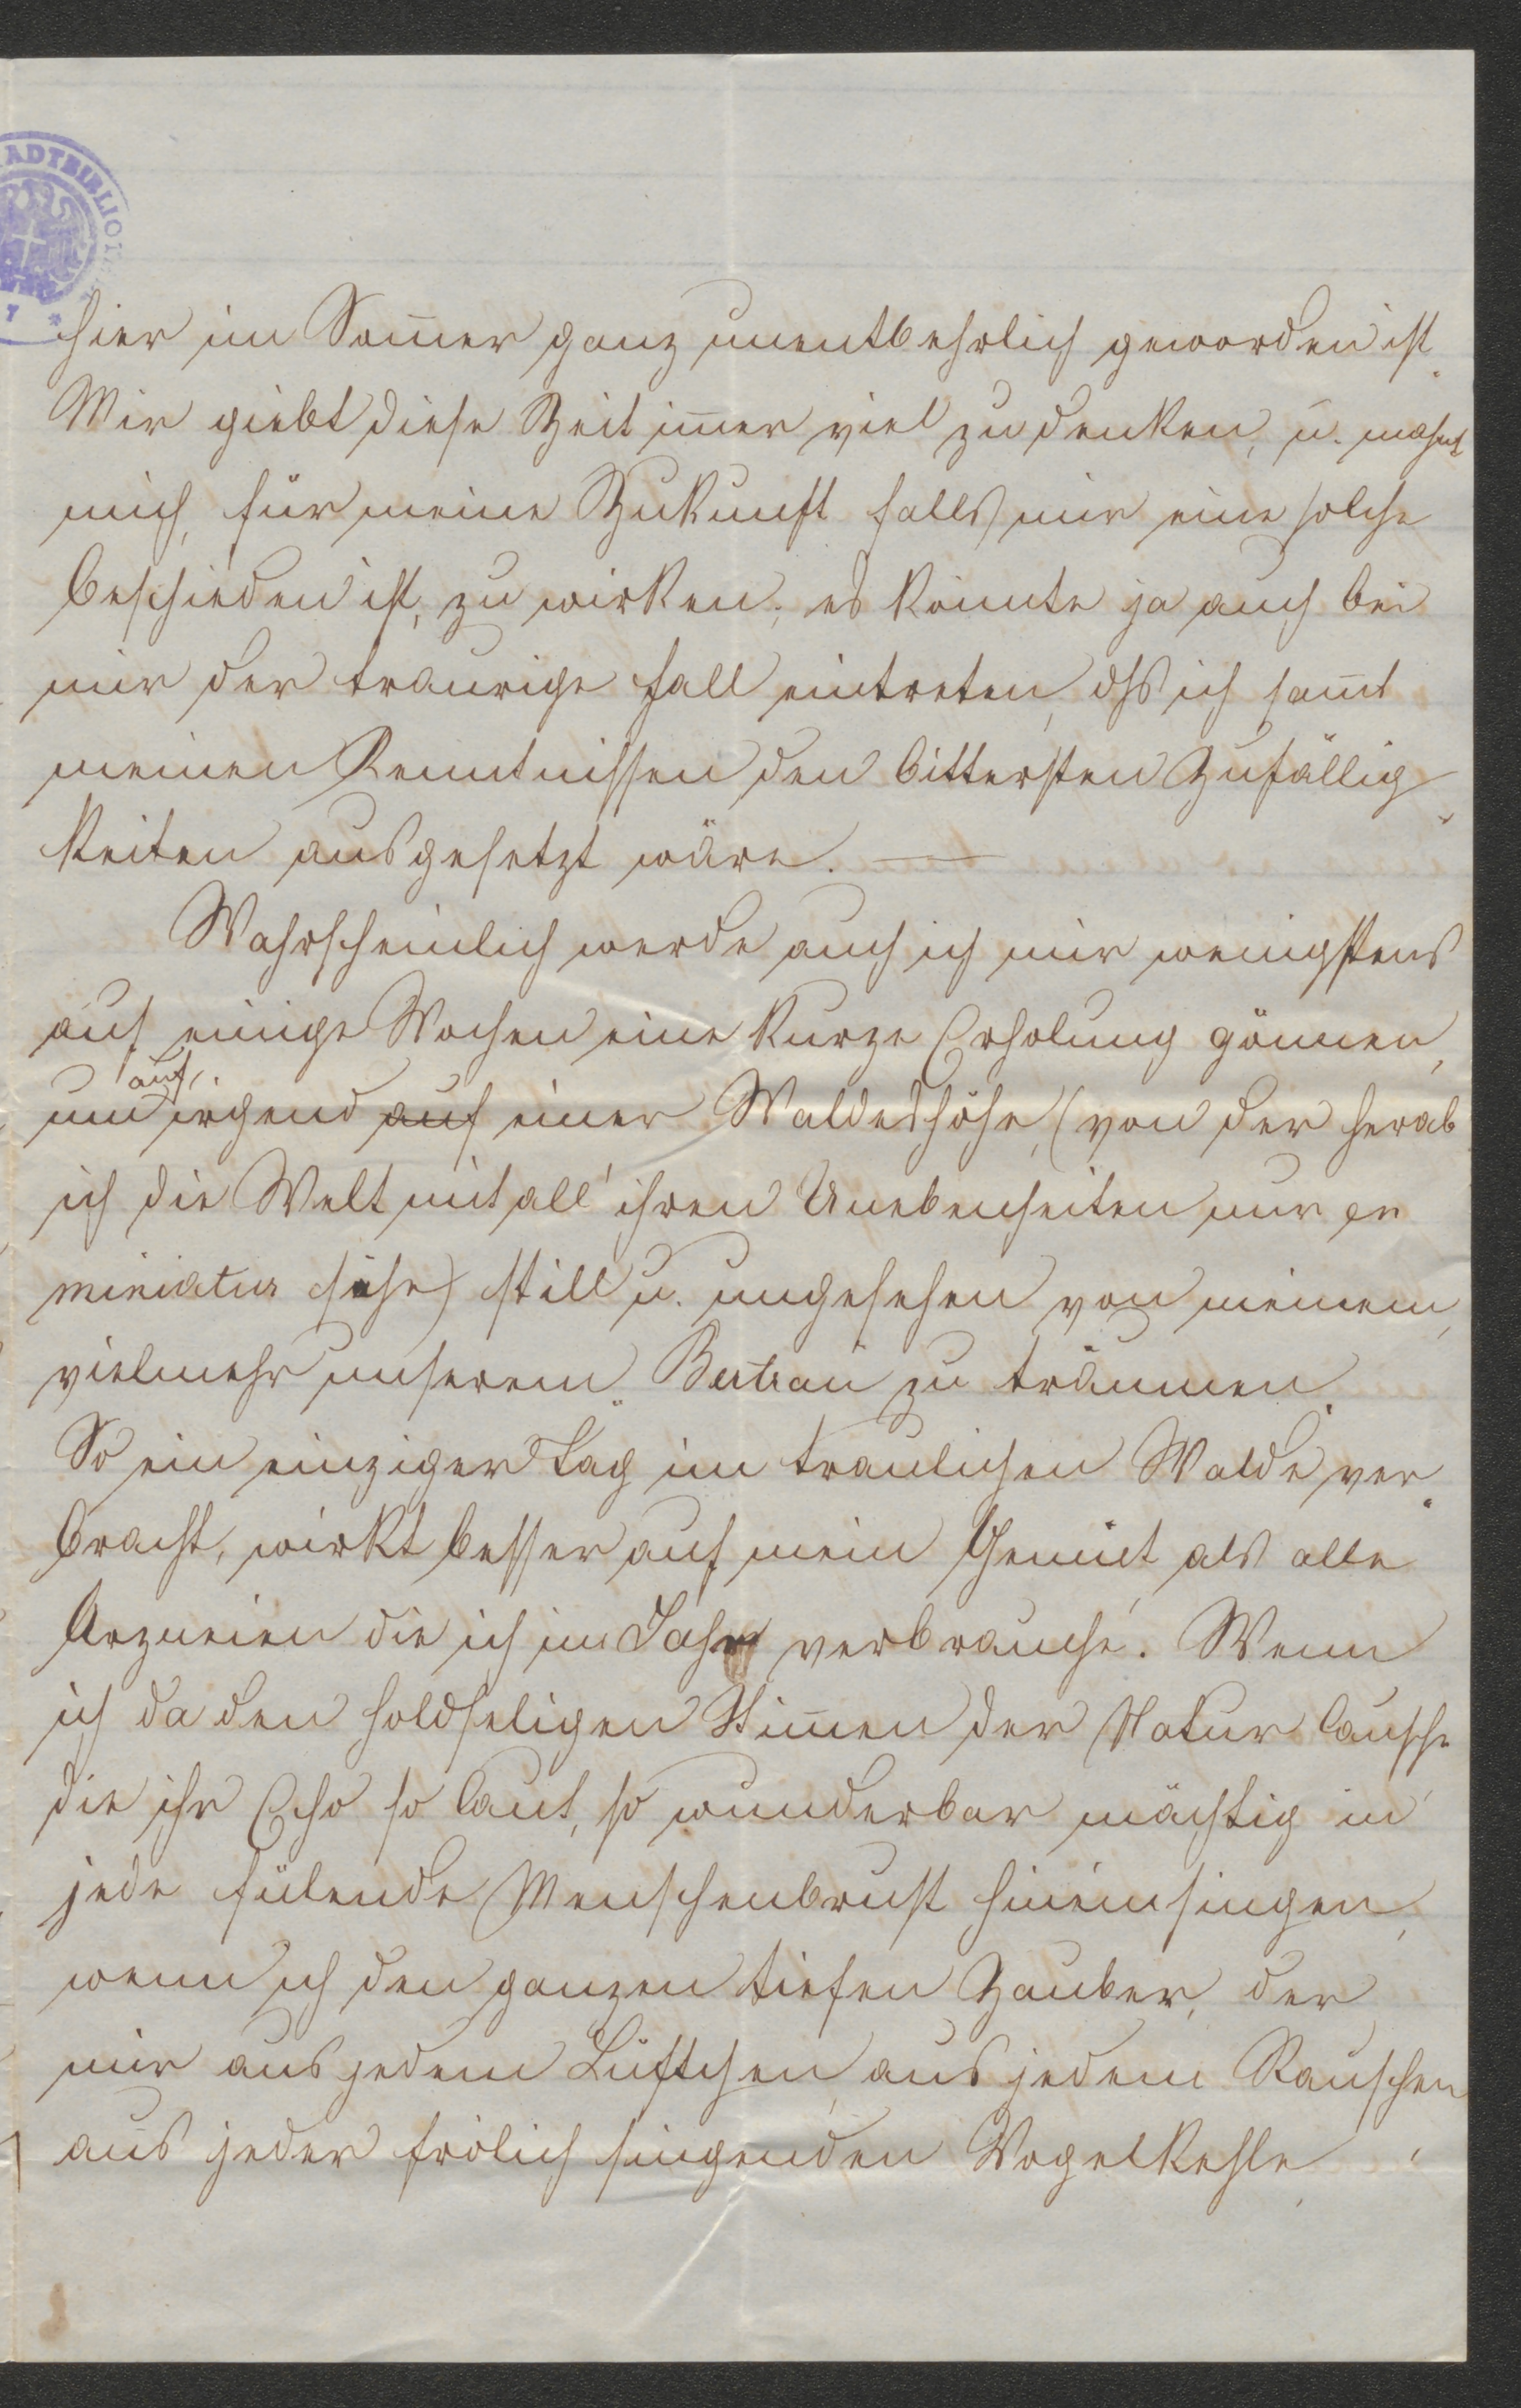 ADTBIBLIOT
hier im Som̄er ganz unentbehrlich geworden ist.
Mir giebt diese Zeit im̄er viel zu denken, u. mahnt
mich, für meine Zukunft falls mir eine solche
beschieden ist, zu wirken; es könnte ja auch bei
mir der traurige Fall eintreten, dß ich sam̄t
meinen Kenntnissen den bittersten Zufällig-
keiten ausgesetzt wäre. —
Wahrscheinlich werde auch ich mir wenigstens
auf einige Wochen eine kurze Erholung gönnen,
auf
um irgend auf einer Waldeshöhe, (von der herab
ich die Welt mit all' ihren Unebenheiten nur en
miniatur sehe) still u. ungesehen von meinem,
vielmehr unserem Bertran zu träumen.
So ein einziger Tag im traulichen Walde ver-
bracht, wirkt besser auf mein Gemüt als alle
Arzneien die ich im Jahr verbrauche. Wenn
ich da den holdseligen Stim̄en der Natur lausche
die ihr Echo so laut, so wunderbar mächtig in
jede fülende Menschenbrust hineinsingen,
wenn ich den ganzen tiefen Zauber, der
mir aus jedem Lüftchen, aus jedem Rauschen
aus jeder frölich singenden Vogelkehle,